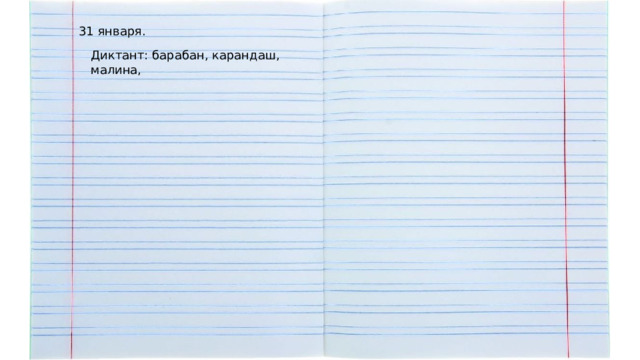 31 января.
Диктант: барабан, карандаш,
малина,